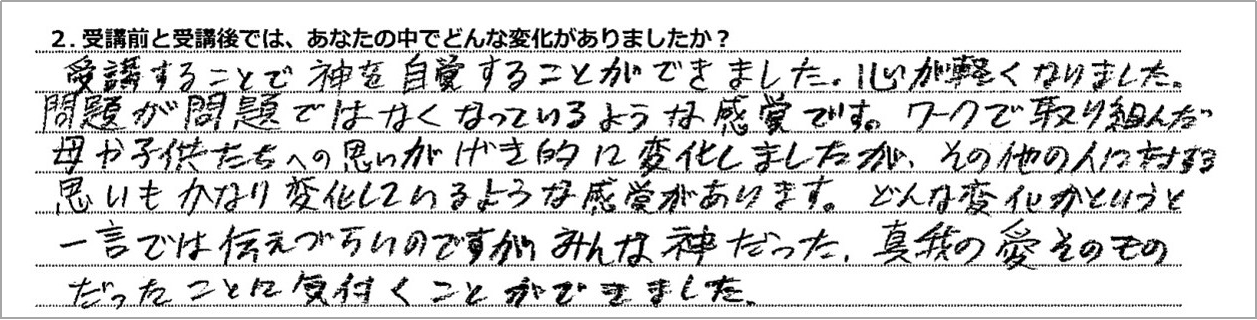 2. 受講前と受講後では、あなたの中でどんな変化がありましたか？
受講することで神を自覚することができました。心が軽くなりました。
問題が問題ではなくなっているような感覚です。ワークで取り組んだ
母や子供たちへの思いがげき的に変化しましたが、その他の人に対する
思いもかなり変化しているような感覚があります。どんな変化かというと
一言では伝えづらいのですが、みんな神だった、真我の愛そのもの
だったことに気付くことができました。